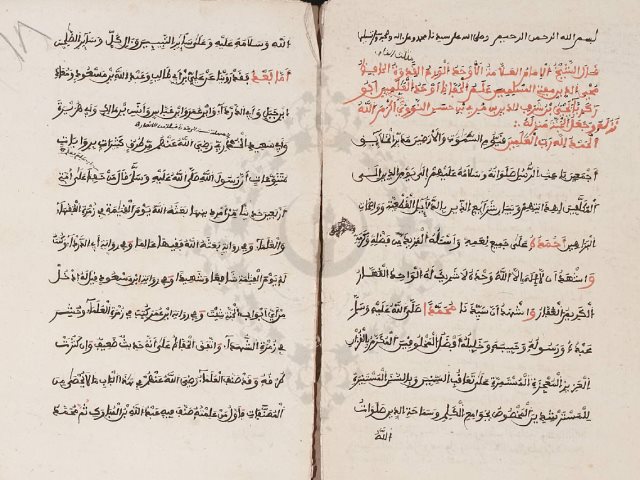 بسم الله الرحمن الرحيم وصلى الله على سيدنا محمد وعلى آله وصحبه وسلم تسليما
قال الشيخ الإمام العلامة الأوحد الورع القدوة الزاهد
محيي الدين أبو
زكرياء يحيى بن شرف الدين بن حسن النووي الله
وجعل الجنة منزله
الحمد لله رب العلمين قيوم السموات والأرضين مدبر الخلائق
أجمعين باعث الرسل صلواته وسلامه عليهم إلى يوم الدين إلى
المكلفين لهدايتهم وبيان شرائع الدين بالدلائل القطعية وواضحات
البراهين أحمده على جميع نعمه وأسئله المزيد من فضله وكرمه
وأشهد أن لا إله إلا الله وحده لا شريك له الواحد القهار
الكريم الغفار وأشهد أن سيدنا محمدا صلى الله عليه وسلم
عبده ورسوله وحبيبه وخليله أفضل المخلوقين المكرم بالقرآن
العزيز المعجزة المستمرة على تعاقب السنين وبالسنن المستنيرة
للمسترشدين المخصوص بجوامع الكلم وسماحة الدين صلوات
الله
الله وسلامه عليه وعلى سائر النبيين وآل كل وسائر الصلحين
أما بعد فقد روينا عن علي بن أبي طالب وعبد الله بن مسعود ومعاذ
بن جبل وأبي الدرداء وابن عمر وابن عباس وأنس بن مالك وأبي هريرة
وأبي سعيد الخدري رضي الله عنهم من طرق كثيرات بروايات
متنوعات أن رسول الله صلى الله عليه وسلم قال من حفظ على أمتي
أربعين حديثا من أمر دينها بعثه الله يوم القيامة في زمرة الفقهاء
والعلماء وفي رواية بعثه الله فقيها عالما وفي رواية أبي الدرداء وكنت
له يوم القيامة شافعا وشهيدا وفي رواية ابن مسعود قيل له ادخل
من أي أبواب الجنة شئت وفي رواية ابن عمر كتب في زمرة العلماء وحشر
في زمرة الشهداء واتفق الحفاظ على أنه حديث ضعيف وإن كثرت
طرقه وقد صنف العلماء رضي الله عنهم في هذا الباب ما لا يحصى من
المصنفات فأول من علمته صنف فيه عبد الله بن المبارك ثم محمد